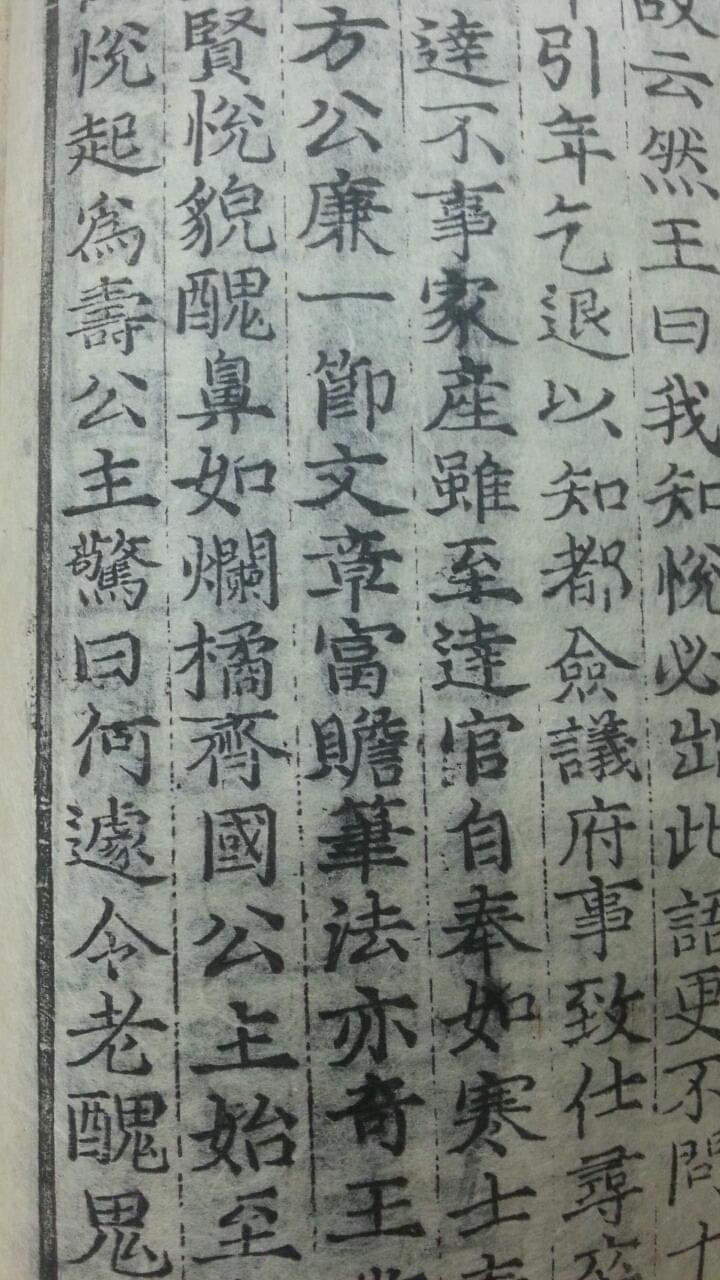 故云然王曰我知悅必出此語更不問十
引年乞退以知都僉議府事致仕尋卒
達不事家産雖至達官自奉如寒士
方公廉一節文章富贍筆法亦奇王
賢悅貌醜鼻如爛橘齊國公主始至
悅起爲壽公主驚曰何遽令老醜鬼